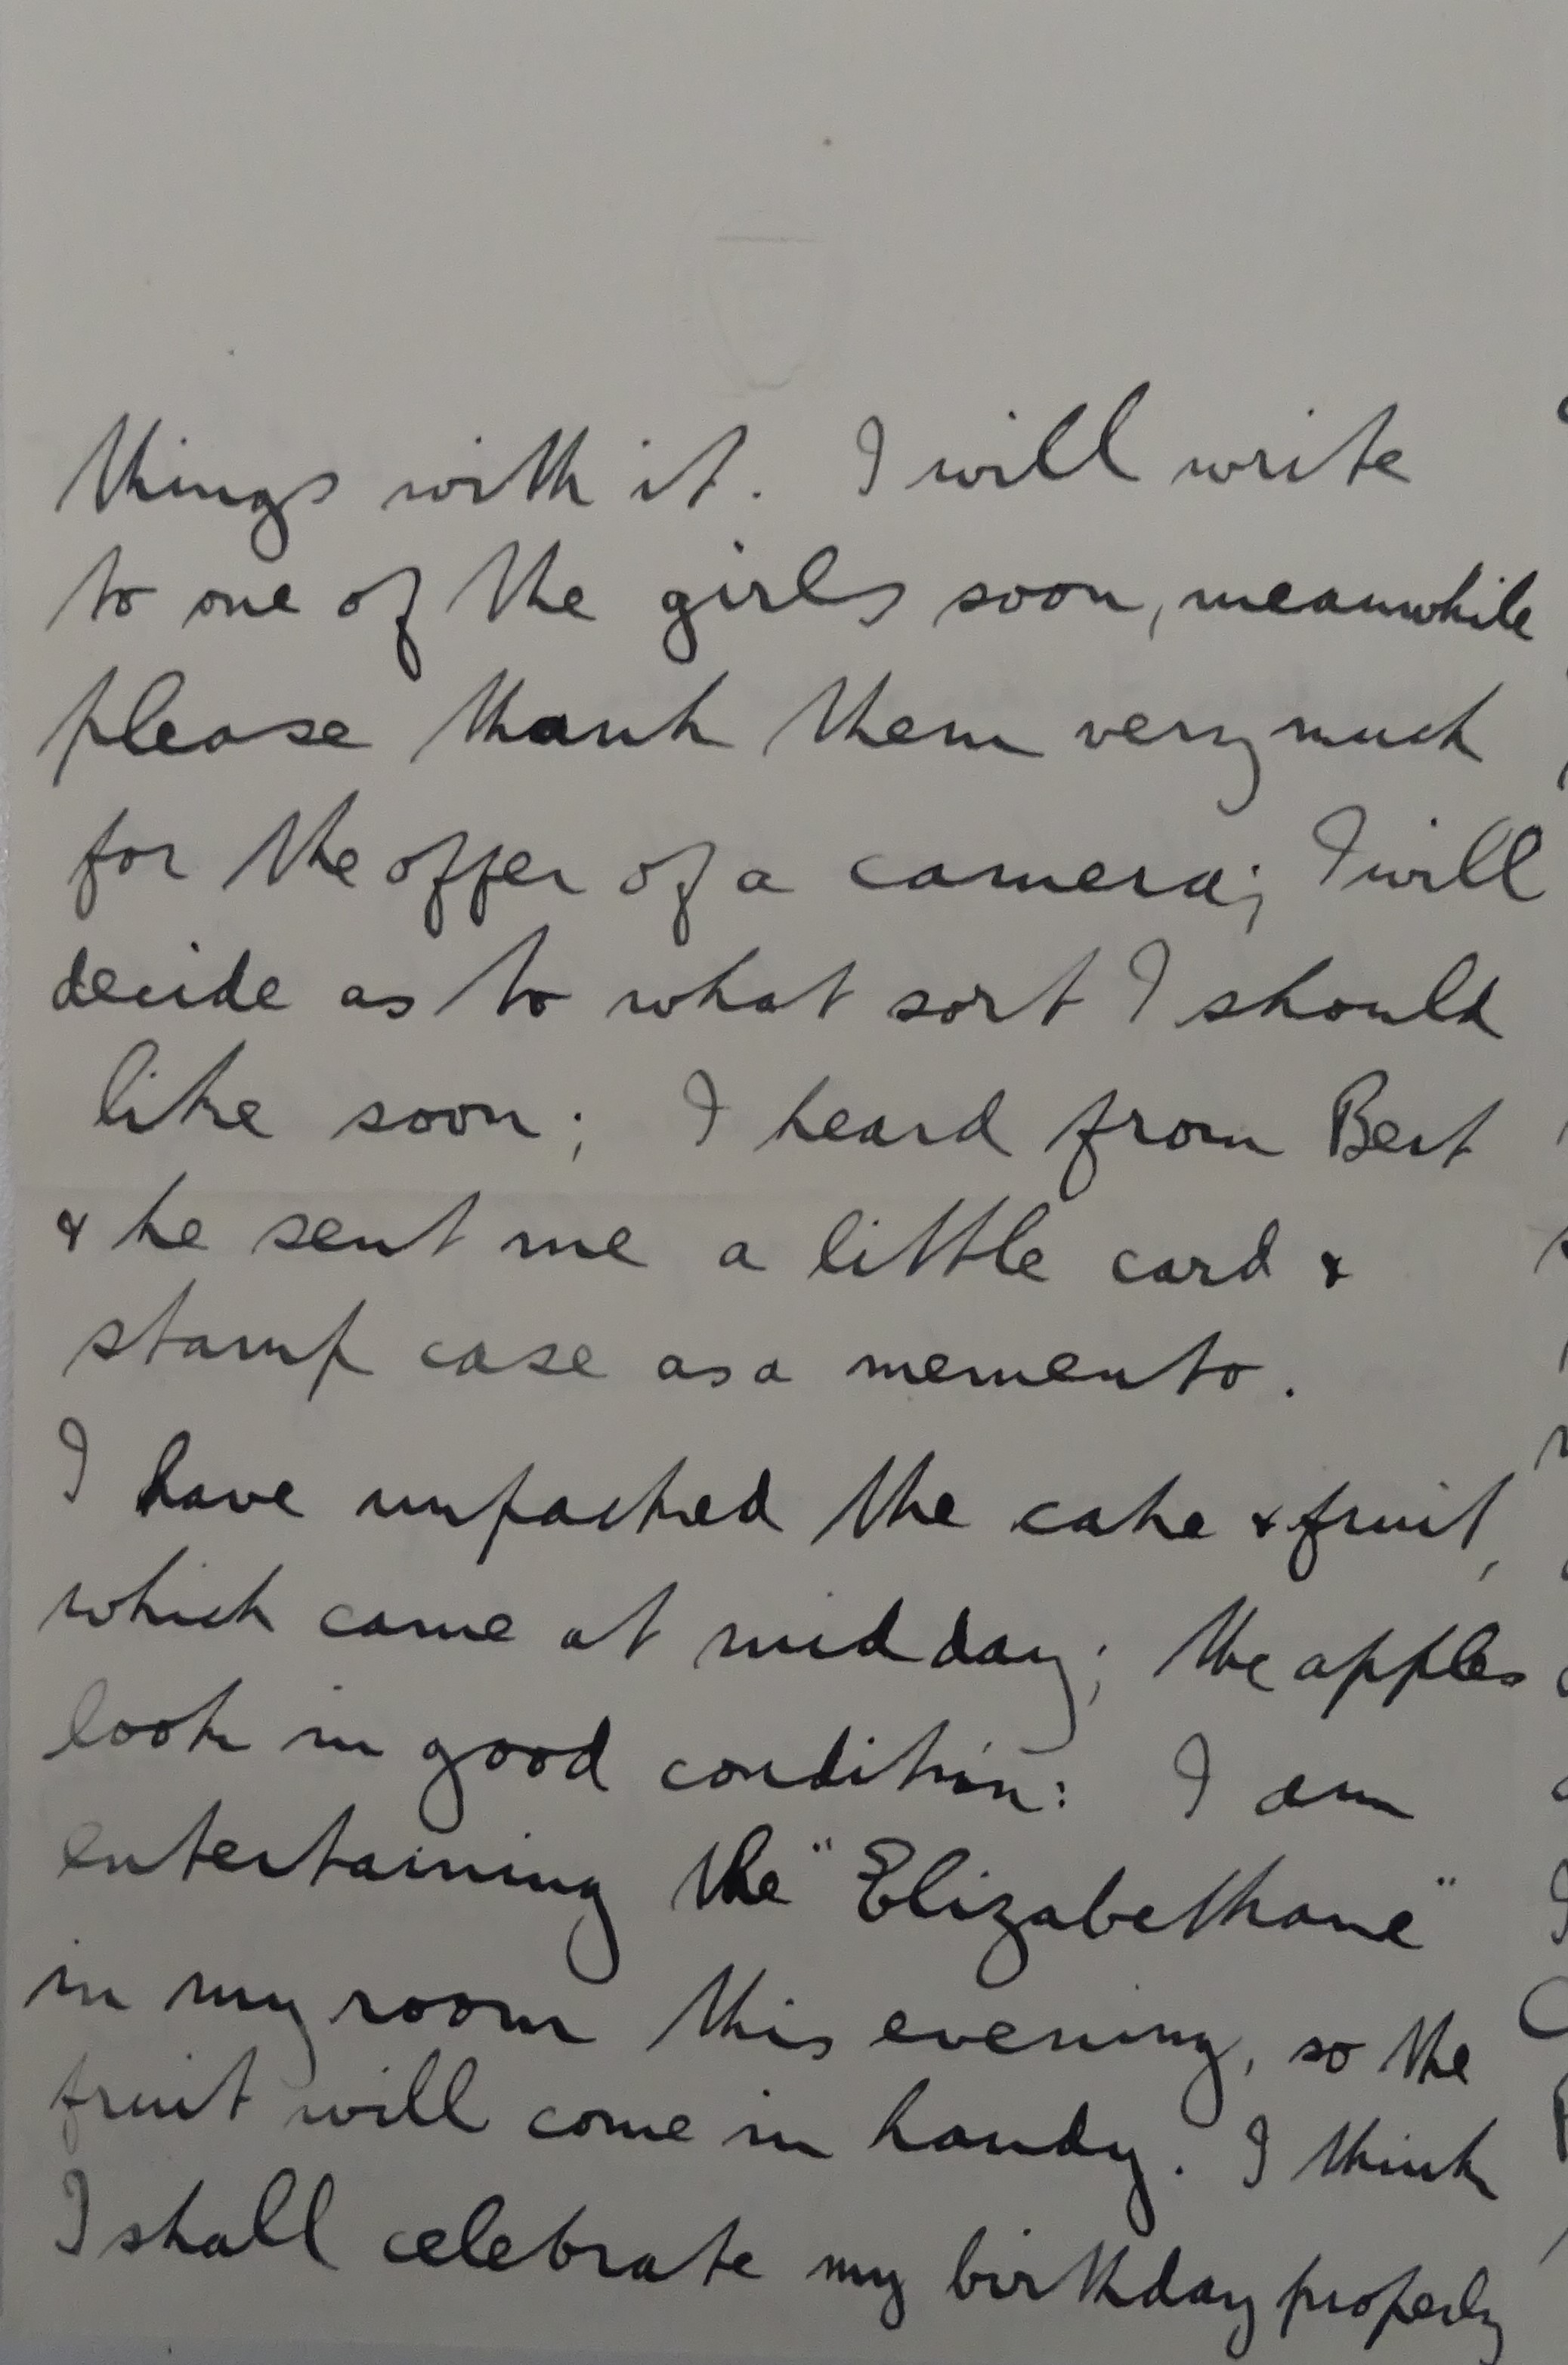 things with it. I will write
to one of the girls soon, meanwhile
please thank them very much
for the offer of a camera; I will
decide as to what sort I should
like soon; I heard from Bert
& he sent me a little card &
stamp case as a memento.
I have unpacked the cake & fruit,
which came at midday; the apples
look in good condition: I am
entertaining the "Elizabethans"
in my room this evening, so the
fruit will come in handy. I think
I shall celebrate my birthday properly